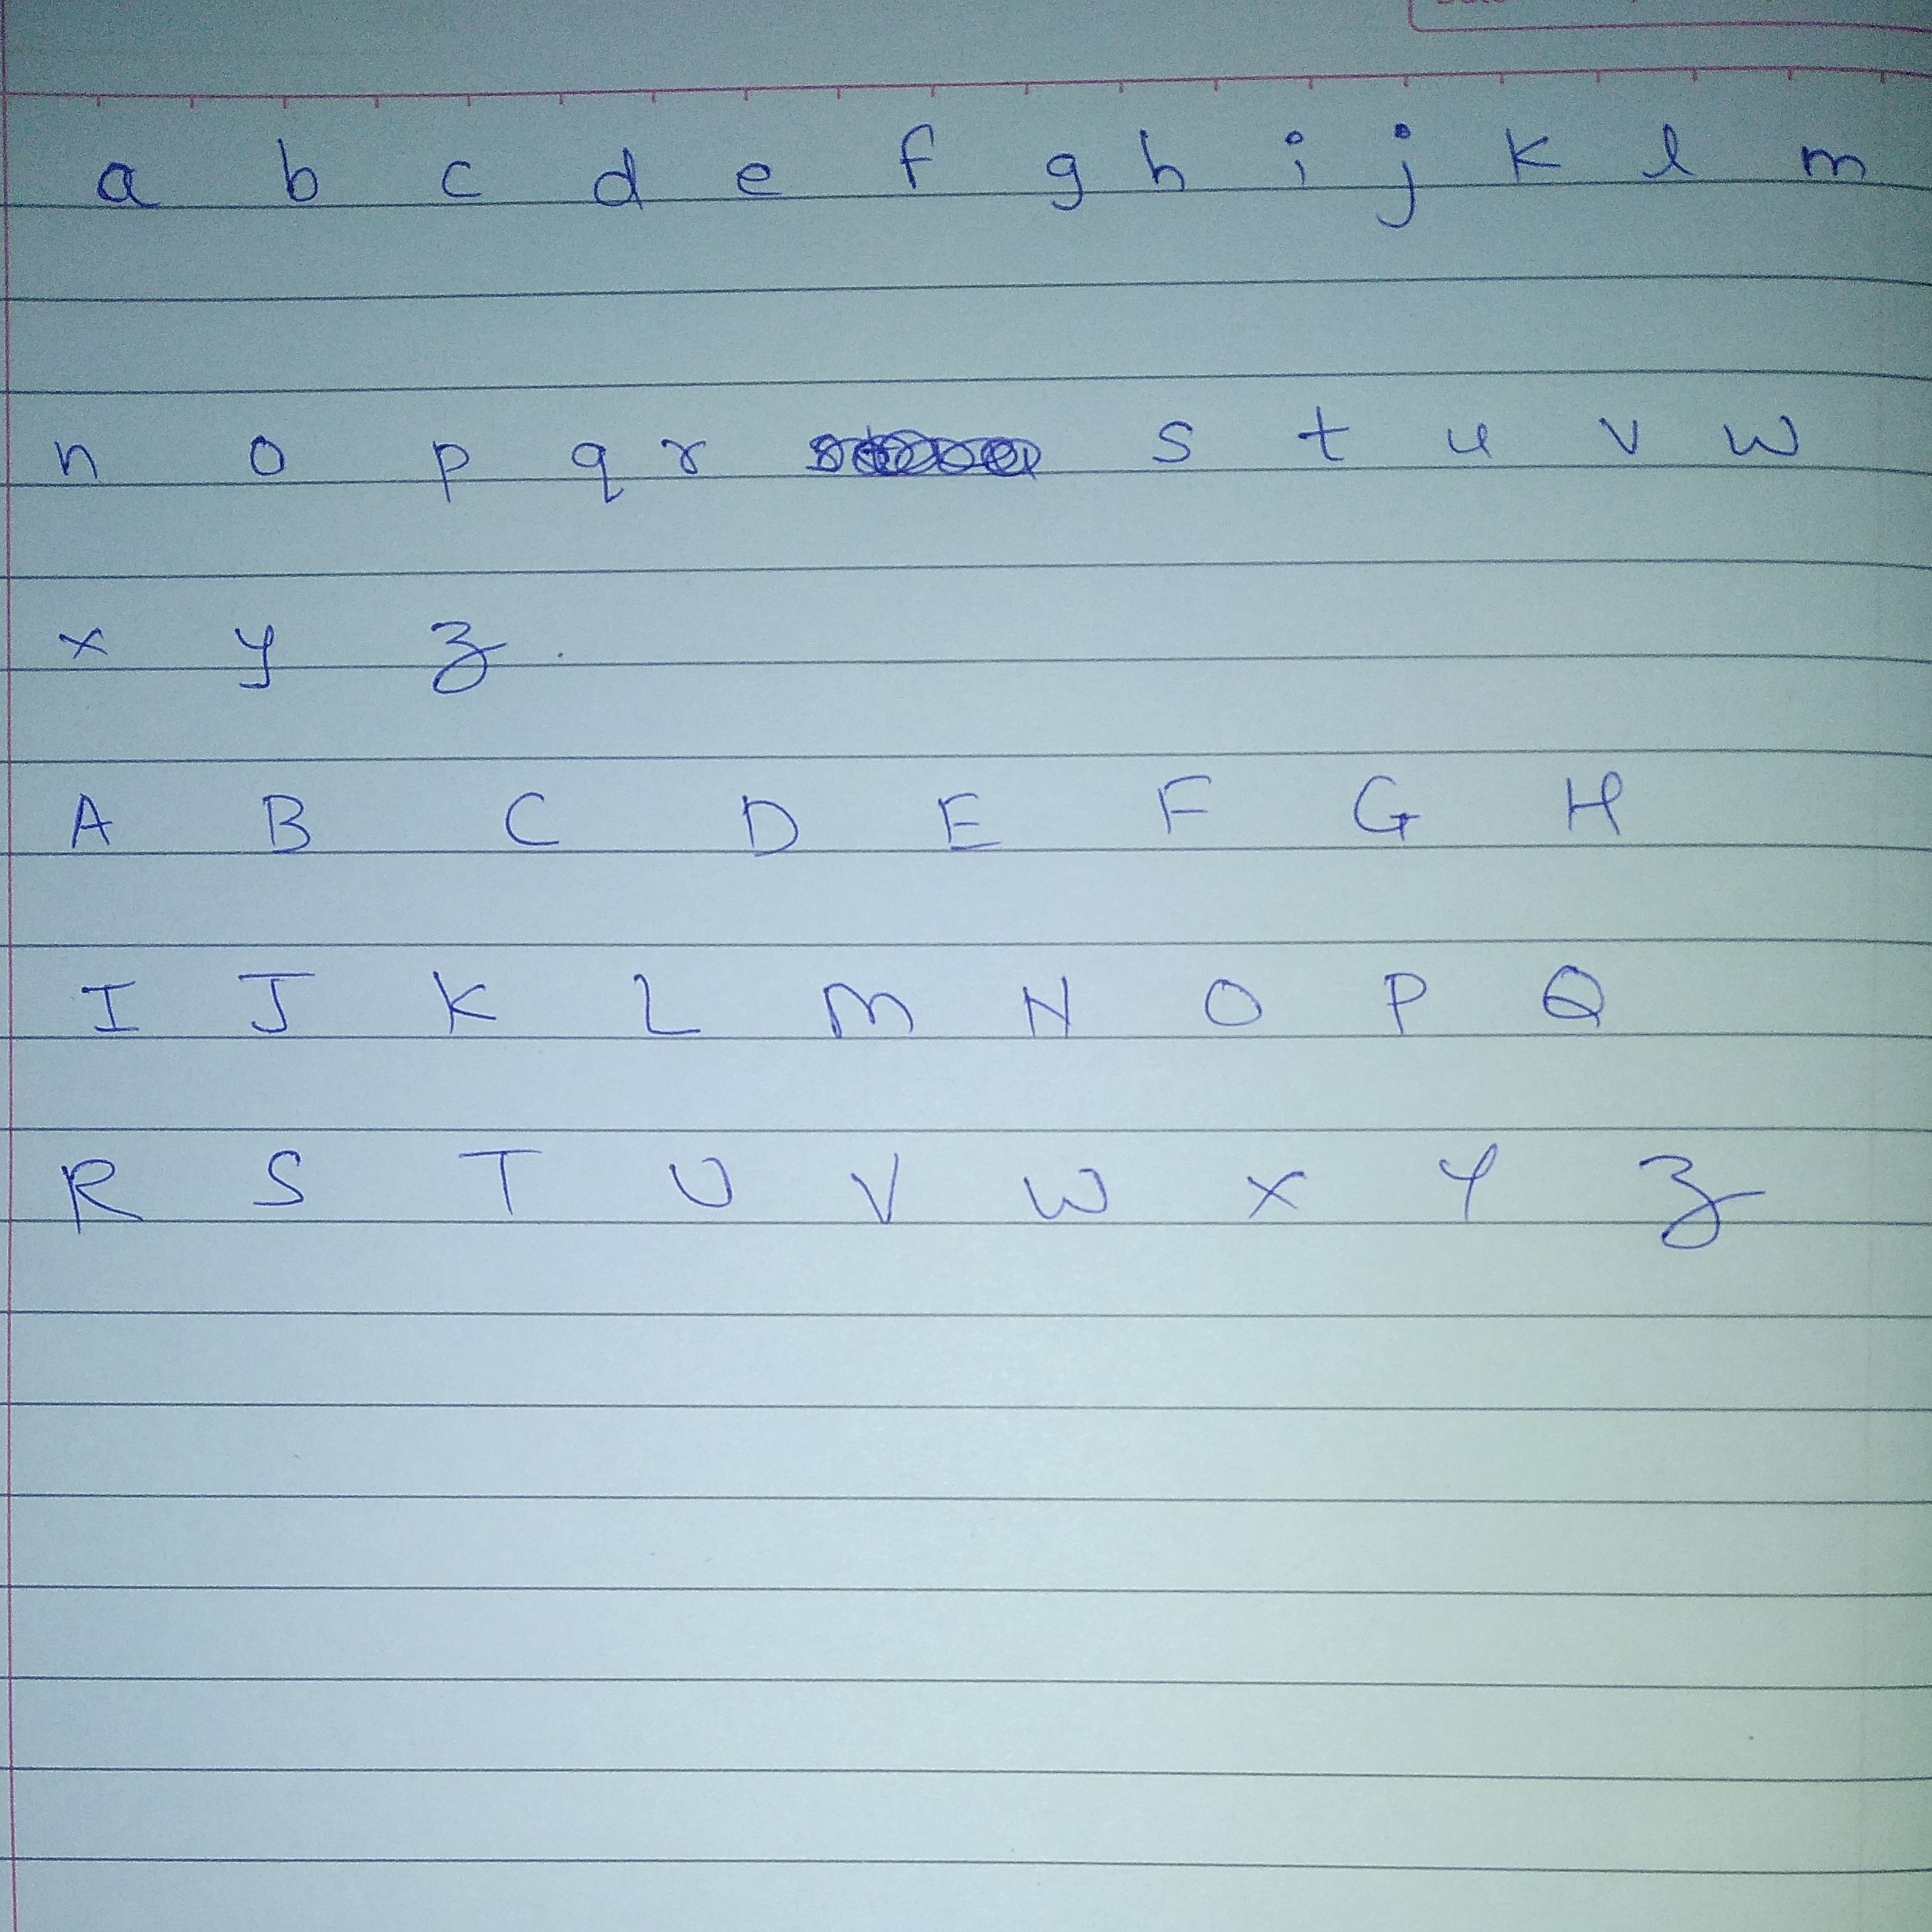 a b c d e f g h i j k l m
n o p q r s t u v w
x y z .
A B C D E F G H
I J K L M N O P Q
R S T U V W X Y Z